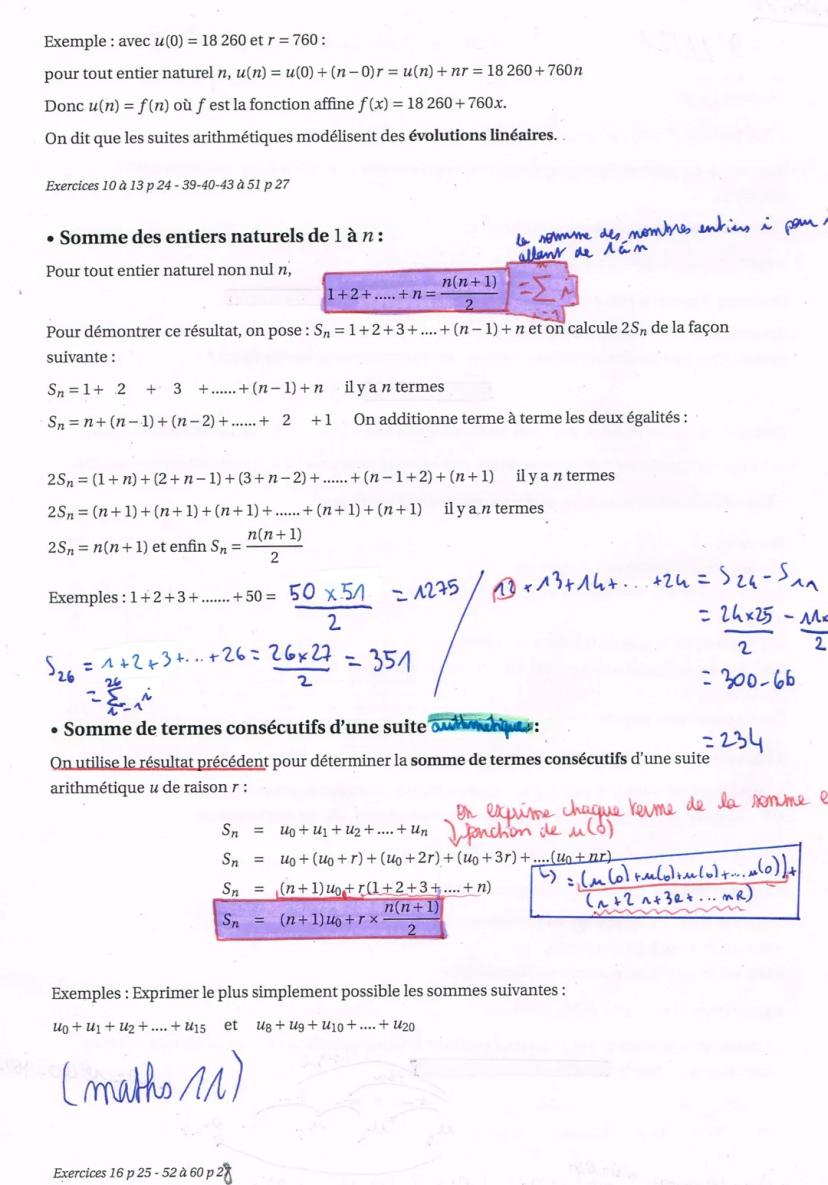 Exemple : avec u(0) = 18 260 et r = 760 :
pour tout entier naturel n, u(n) = u(0) + (n − 0)r = u(n) + nr = 18 260 + 760n
Donc u(n) = f(n) où f est la fonction affine f(x) = 18 260 + 760x.
On dit que les suites arithmétiques modélisent des évolutions linéaires.
Exercices 10 à 13 p 24 - 39-40-43 à 51 p 27
• Somme des entiers naturels de 1 à n :
la somme des nombres entiers i pour i
allant de 1 à n
Pour tout entier naturel non nul n,
1 + 2 + ..... + n = n(n+1)/2 = ∑
Pour démontrer ce résultat, on pose : Sn = 1 + 2 + 3 + .... + (n − 1) + n et on calcule 2Sn de la façon
suivante :
Sn = 1 + 2 + 3 + ...... + (n − 1) + n il y a n termes
Sn = n + (n − 1) + (n − 2) + ...... + 2 + 1 On additionne terme à terme les deux égalités :
2Sn = (1 + n) + (2 + n − 1) + (3 + n − 2) + ...... + (n − 1 + 2) + (n + 1) il y a n termes
2Sn = (n + 1) + (n + 1) + (n + 1) + ...... + (n + 1) + (n + 1) il y a n termes
2Sn = n(n + 1) et enfin Sn = n(n+1)/2
Exemples : 1 + 2 + 3 + ....... + 50 = 50 × 51/2 = 1275 / 12 + 13 + 14 + ... + 24 = S24 − S11
= 24×25/2 − 11×/2
S26 = 1 + 2 + 3 + ... + 26 = 26×27/2 = 351
= 26∑i=1 i
= 300 − 66
= 234
• Somme de termes consécutifs d'une suite arithmétique :
On utilise le résultat précédent pour déterminer la somme de termes consécutifs d'une suite
arithmétique u de raison r :
On exprime chaque terme de la somme e
fonction de u(0)
Sn = u0 + u1 + u2 + .... + un
Sn = u0 + (u0 + r) + (u0 + 2r) + (u0 + 3r) + ....(u0 + nr)
↳ = (u(0) + u(0) + u(0) + ... u(0)) +
(r + 2r + 3r + ... nr)
Sn = (n + 1)u0 + r(1 + 2 + 3 + .... + n)
Sn = (n + 1)u0 + r × n(n+1)/2
Exemples : Exprimer le plus simplement possible les sommes suivantes :
u0 + u1 + u2 + .... + u15 et u8 + u9 + u10 + .... + u20
(maths 11)
Exercices 16 p 25 - 52 à 60 p 28